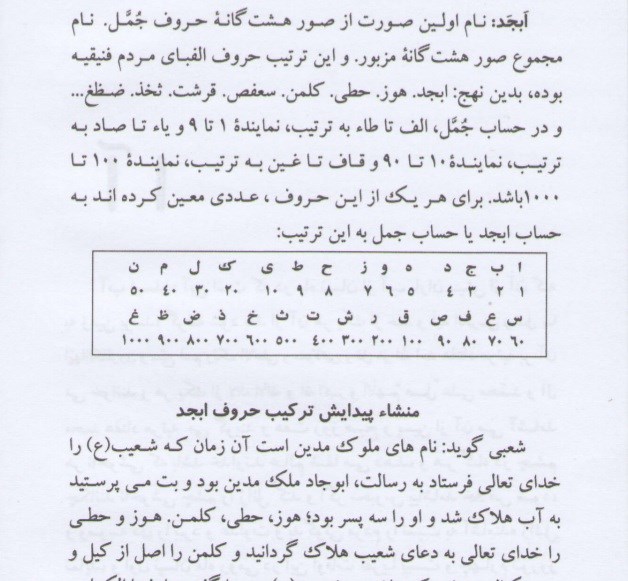 اَبجَد: نام اولین صورت از صور هشت گانهٔ حروف جُمَّل. نام
مجموع صور هشت گانهٔ مزبور. و این ترتیب حروف الفبای مردم فنیقیه
بوده، بدین نهج: ابجد. هوز. حطی. کلمن. سعفص. قرشت. ثخذ. ضظغ...
و در حساب جَمَّل، الف تا طاء به ترتیب، نمایندهٔ ۱ تا ۹ و یاء تا صاد به
ترتیب، نمایندهٔ ۱۰ تا ۹۰ و قاف تا غین به ترتیب، نمایندهٔ ۱۰۰ تا
۱۰۰۰باشد. برای هر یک از این حروف ، عددی معین کرده اند به
حساب ابجد یا حساب جمل به این ترتیب:
ا ب ج د ه و ز ح ط ی ک ل م ن
۱ ۲ ۳ ۴ ۵ ۶ ۷ ۸ ۹ ۱۰ ۲۰ ۳۰ ۴۰ ۵۰
س ع ف ص ق ر ش ت ث خ ذ ض ظ غ
۶۰ ۷۰ ۸۰ ۹۰ ۱۰۰ ۲۰۰ ۳۰۰ ۴۰۰ ۵۰۰ ۶۰۰ ۷۰۰ ۸۰۰ ۹۰۰ ۱۰۰۰
منشاء پیدایش ترکیب حروف ابجد
شعبی گوید: نام های ملوک مدین است آن زمان که شعیب(ع) را
خدای تعالی فرستاد به رسالت، ابوجاد ملک مدین بود و بت می پرستید
به آب هلاک شد و او را سه پسر بود؛ هوز، حطی، کلمـن. هـوز و حطـی
را خدای تعالی به دعای شعیب هلاک گردانید و کلمن را اصل از کیل و